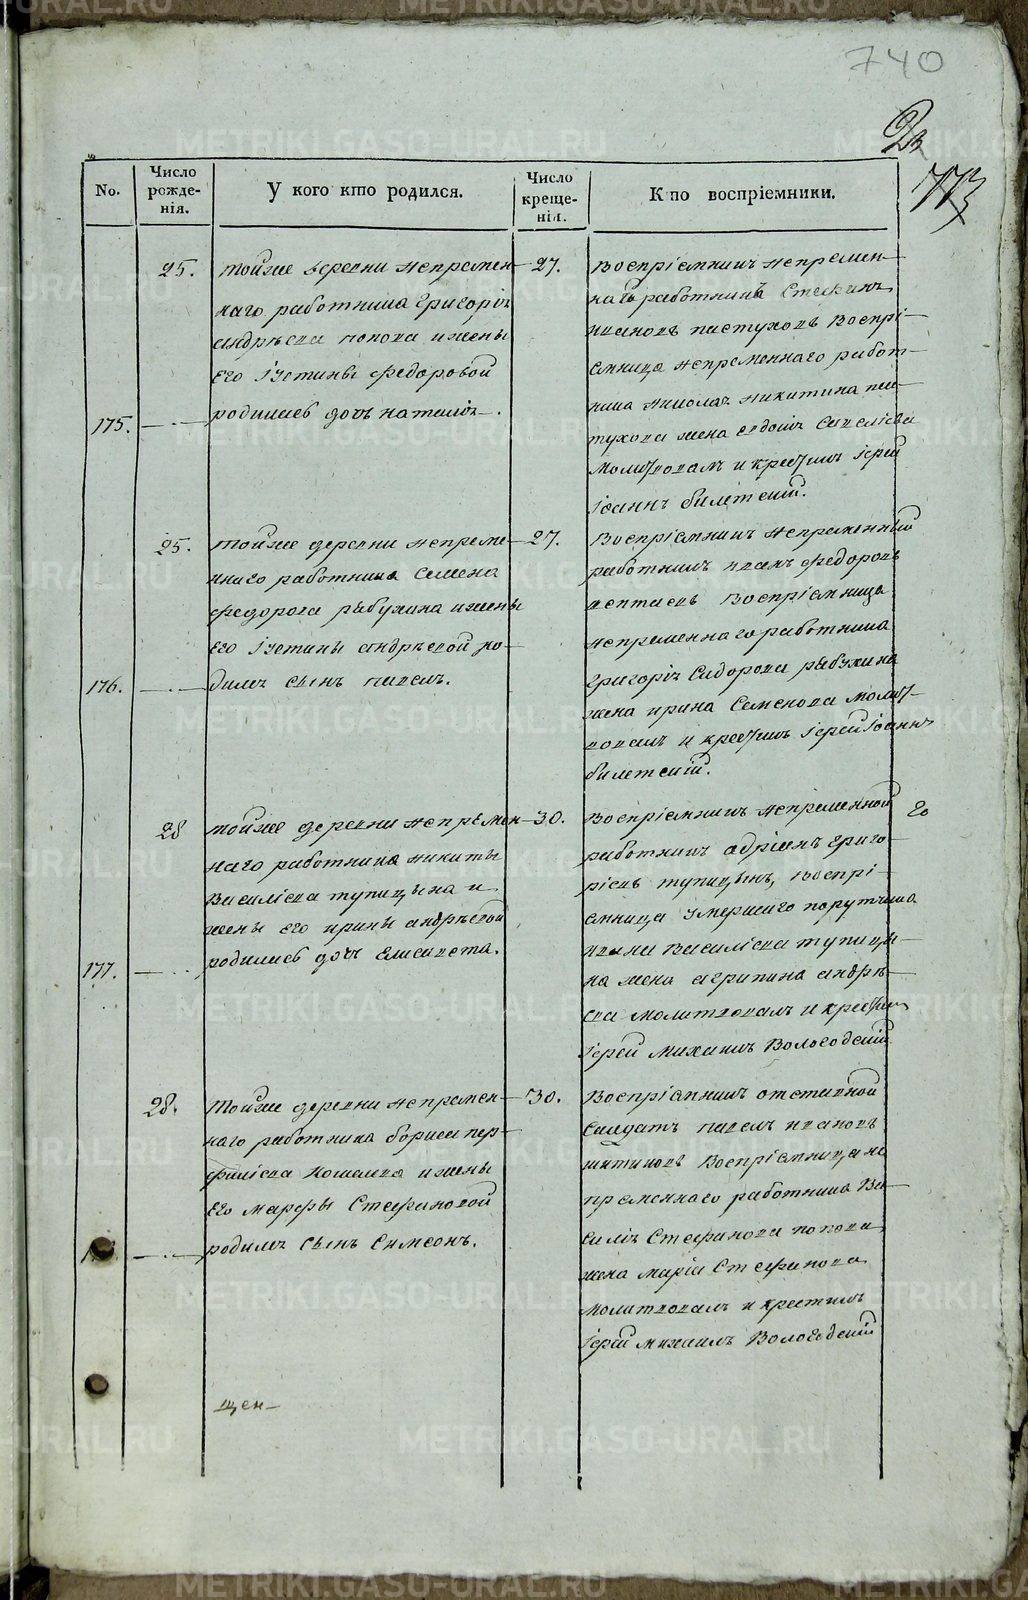 740
23
773
No.
Число рожде-нія.
У кого кто родился.
Число креще-нія.
Кто воспріемники.
175.
25.
тойже деревни непремен-
наго работника Григорія
андрѣева попова и жены
Его Iустины федоровой
родилась дочь наталія.
27.
Воспріемникъ непремен-
наго работникъ Стефанъ
ивановъ пастуховъ Воспрі-
емница непременнаго работ-
ника николая никитина пас-
тухова жена евдокія Савеліева
молитвовалъ и крестилъ Iерей
Iоаннъ билетскій.
176.
25.
тойже деревни непреме-
ннаго работника Семена
федорова рябухина и жены
Его Iустины андрѣевой ро-
дился Сынъ павелъ.
27.
Воспріемникъ непременный
работникъ иванъ федоровъ
Воспріемница
непременнаго работника
григорія Сидорова рябухина
жена ирина Семенова молит-
вовалъ и крестилъ Iерей Iоаннъ
билетскій.
177.
28
тойже деревни непремен-
наго работника никиты
Василіева тупицына и
жены Его ирины андрѣевой
родилась дочь Елисавета.
30.
Воспріемникъ непременной
работникъ адріанъ григо-
ріевъ тупицынъ, воспрі-
емница умершаго порутчика
ивана Василіева тупицы-
на жена агрипина андрѣ-
ева молитвовалъ и крестилъ
Iерей михаилъ Вологодскій
20
28.
Тойже деревни непремен-
наго работника бориса пер-
филіева Кошелева и жены
Его марфы Стефановой
родился Сынъ Симеонъ.
30.
Воспріемникъ отставной
Салдатъ павелъ ивановъ
Воспріемница не
пременнаго работника Ва-
силія Стефанова попова
жена марія Стефанова
молитвовалъ и крестилъ
Iерей михаилъ Вологодскій
щен-
METRIKI.GASO-URAL.RU